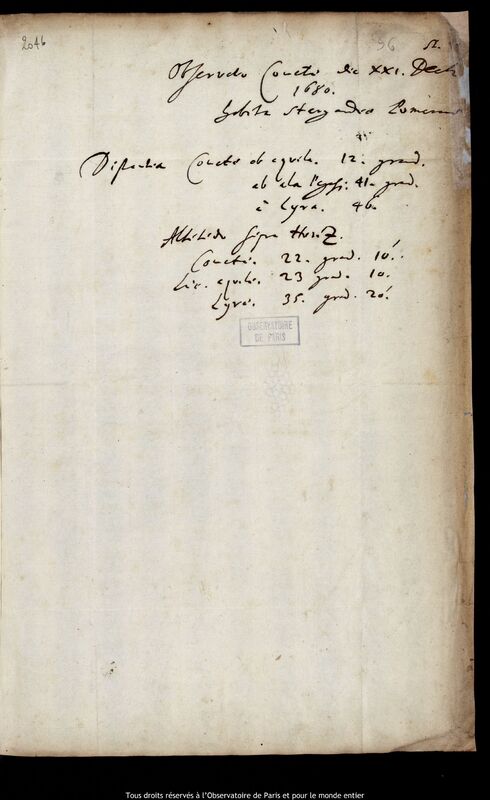 2046
36
52.
Observatio Cometæ die XXI. Decb
1680.
habita Stargardiæ Pomeran
Distantia Cometæ ab aquila. 12. grad.
ab ala Pegasi. 41. grad.
à Lyra. 46.
Altitudo supra Horiz.
Cometæ. 22. grad. 10'.
Luc. aquilæ. 23 grad. 10.
Lyræ. 35. grad. 20'.
OBSERVATOIRE
DE PARIS
Tous droits réservés à l'Observatoire de Paris et pour le monde entier